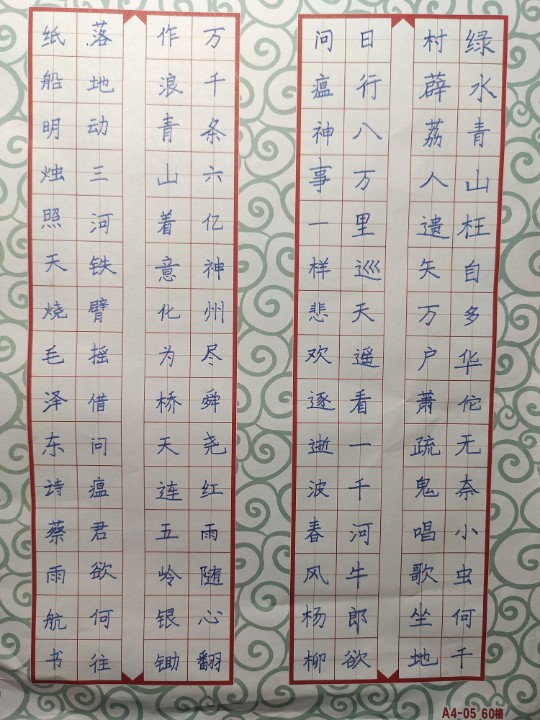 绿水青山枉自多华佗无奈小虫何千
村薜荔人遗矢万户萧疏鬼唱歌坐地
日行八万里巡天遥看一千河牛郎欲
问瘟神事一样悲欢逐逝波春风杨柳
万千条六亿神州尽舜尧红雨随心翻
作浪青山着意化为桥天连五岭银锄
落地动三河铁臂摇借问瘟君欲何往
纸船明烛照天烧毛泽东诗蔡雨航书
A4-05 60格